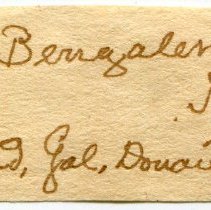 Bengalen
d, Gal, Donau